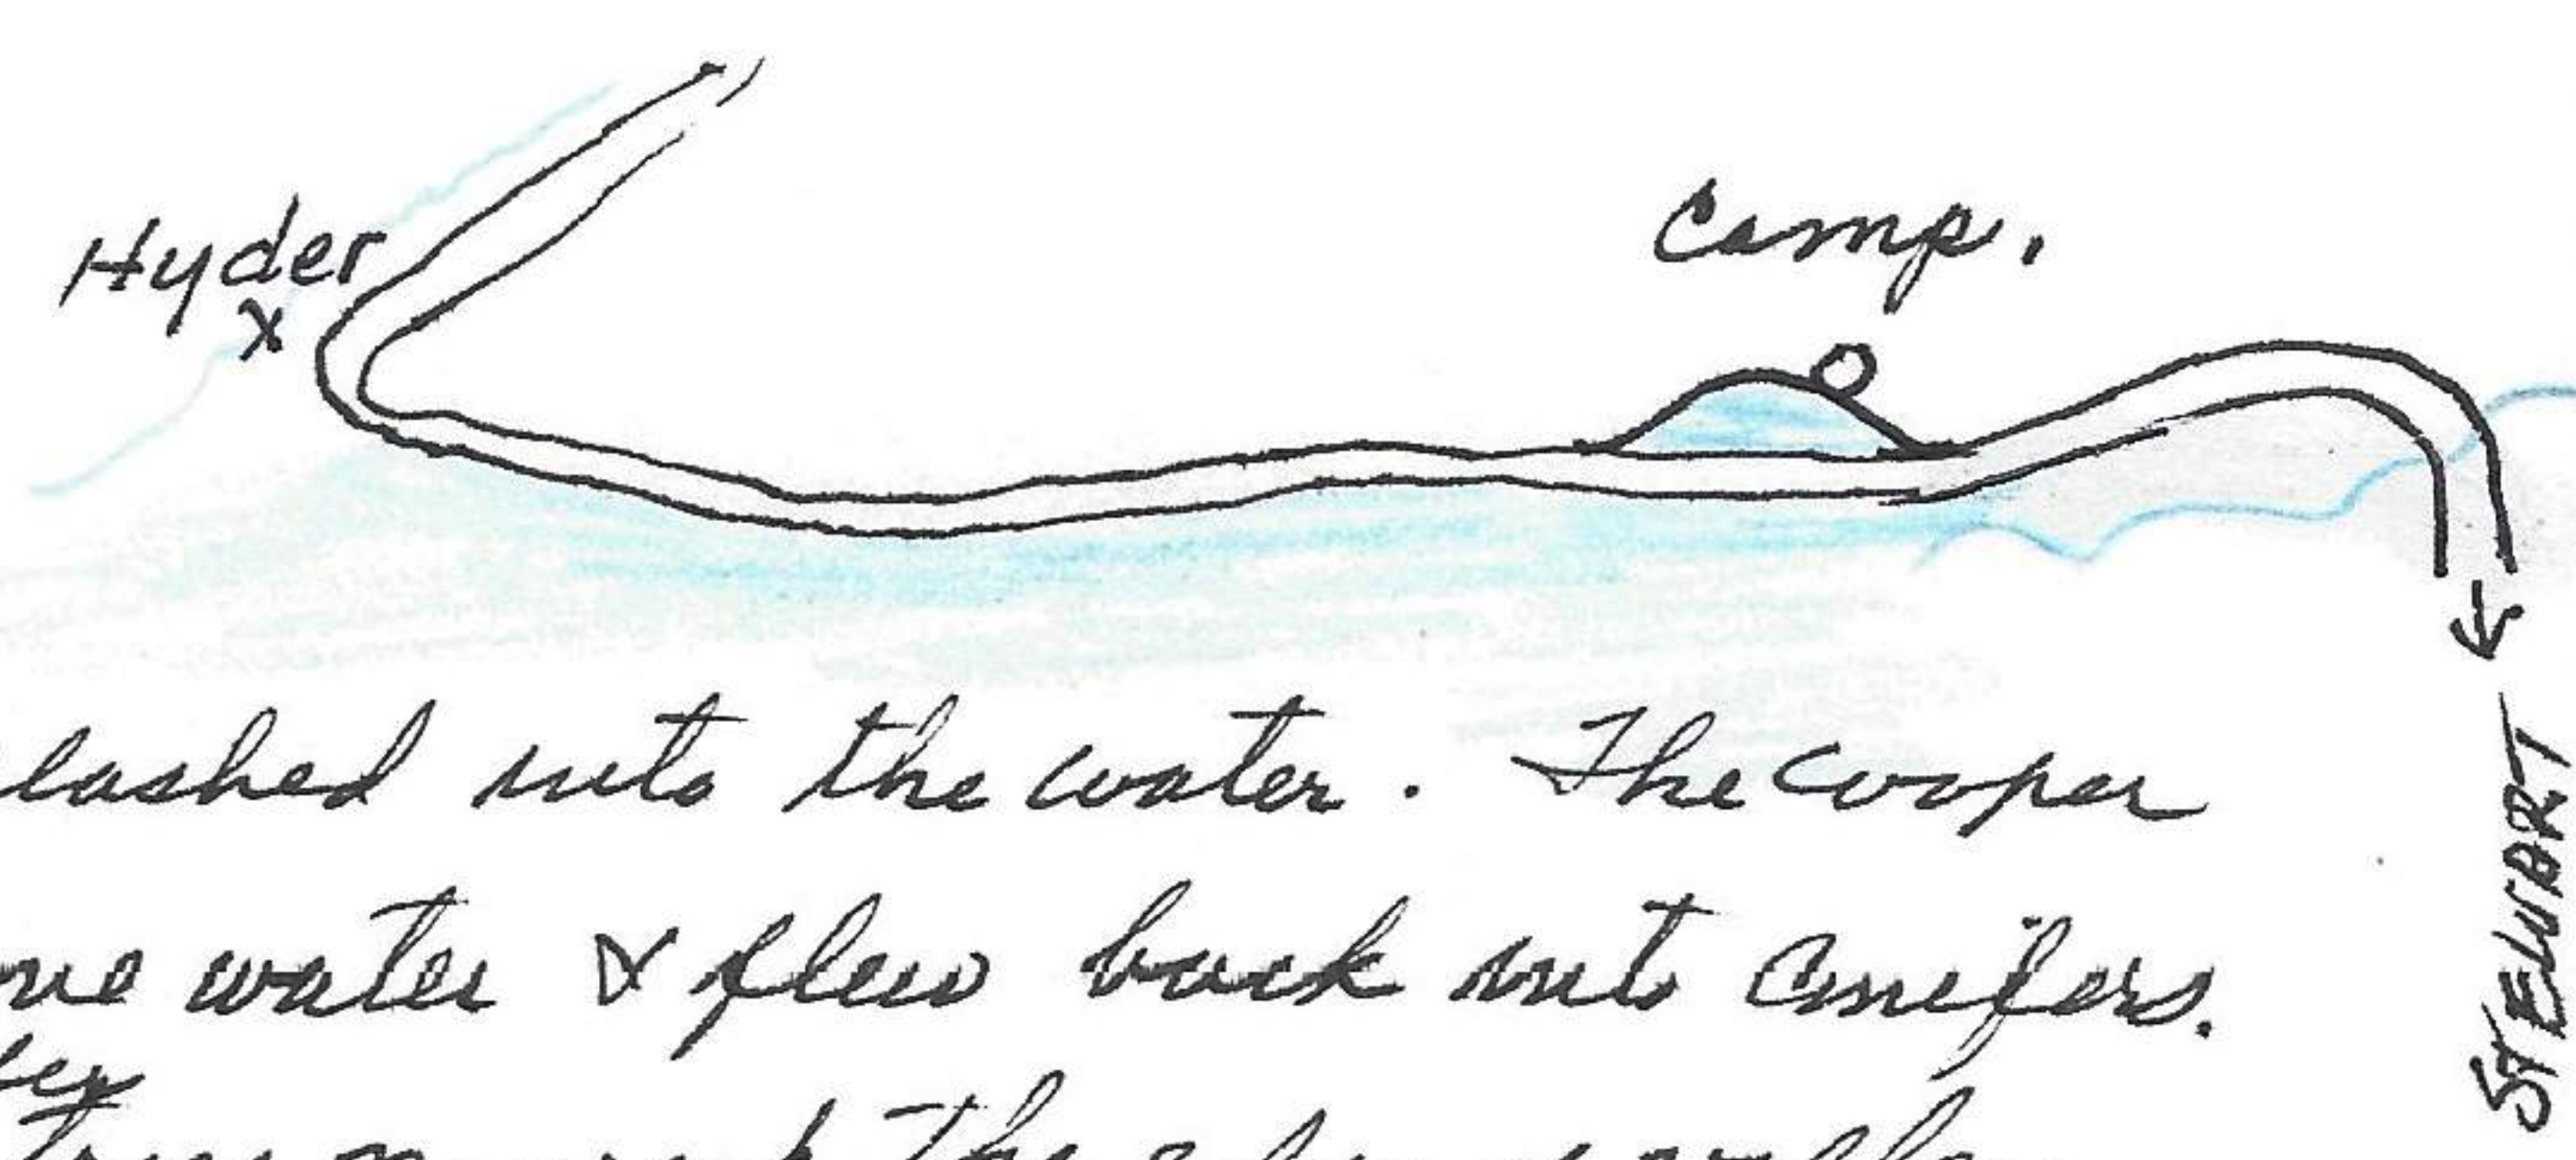 Hyder
x
Camp.
STEWART
lashed into the water. The Cooper
water & flew back into Conifers.
the